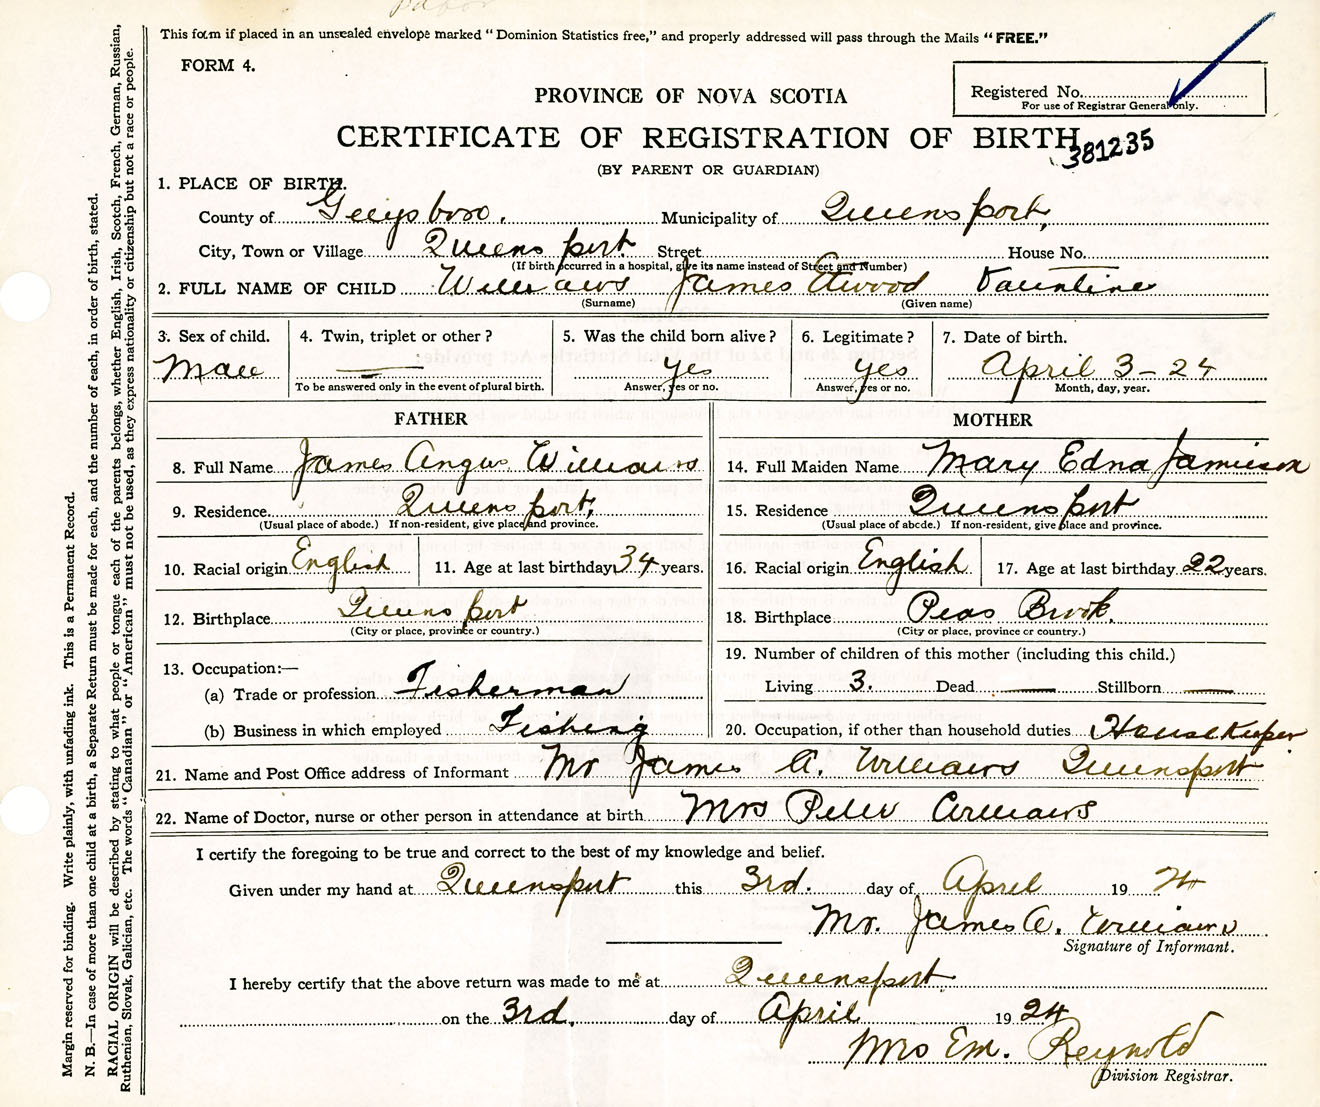 This form if placed in an unsealed envelope marked "Dominion Statistics free," and properly addressed will pass through the Mails "FREE."
FORM 4.
Registered No.
For use of Registrar General only.
PROVINCE OF NOVA SCOTIA
CERTIFICATE OF REGISTRATION OF BIRTH
381235
(BY PARENT OR GUARDIAN)
1. PLACE OF BIRTH.
County of Guysboro. Municipality of Queensport,
City, Town or Village Queensport. Street House No.
(If birth occurred in a hospital, give its name instead of Street and Number)
2. FULL NAME OF CHILD Williams James Atwood
(Surname) (Given name)
3. Sex of child. 4. Twin, triplet or other? 5. Was the child born alive? 6. Legitimate? 7. Date of birth.
Male — Yes Yes April 3-24
To be answered only in the event of plural birth. Answer, yes or no. Answer, yes or no. Month, day, year.
FATHER MOTHER
8. Full Name James Angus Williams 14. Full Maiden Name Mary Edna Jamieson
9. Residence Queensport, 15. Residence Queensport
(Usual place of abode.) If non-resident, give place and province. (Usual place of abode.) If non-resident, give place and province.
10. Racial origin English 11. Age at last birthday 34 years. 16. Racial origin English 17. Age at last birthday 22 years.
12. Birthplace Queensport 18. Birthplace Peas Brook.
(City or place, province or country.) (City or place, province or country.)
13. Occupation:— 19. Number of children of this mother (including this child.)
(a) Trade or profession Fisherman Living 3. Dead — Stillborn —
(b) Business in which employed Fishing 20. Occupation, if other than household duties HouseKeeper
21. Name and Post Office address of Informant Mr James A. Williams Queensport
22. Name of Doctor, nurse or other person in attendance at birth Mrs Peter
I certify the foregoing to be true and correct to the best of my knowledge and belief.
Given under my hand at Queensport this 3rd. day of April 19 24
Mr. James A. Williams
Signature of Informant.
I hereby certify that the above return was made to me at Queensport
on the 3rd, day of April 19 24
Mrs Em. Reynold
Division Registrar.
Margin reserved for binding. Write plainly, with unfading ink. This is a Permanent Record.
N. B.—In case of more than one child at a birth, a Separate Return must be made for each, and the number of each, in order of birth, stated.
RACIAL ORIGIN will be described by stating to what people or tongue each of the parents belongs, whether English, Irish, Scotch, French, German, Russian,
Ruthenian, Slovak, Galician, etc. The words "Canadian" or "American" must not be used, as they express nationality or citizenship but not a race or people.